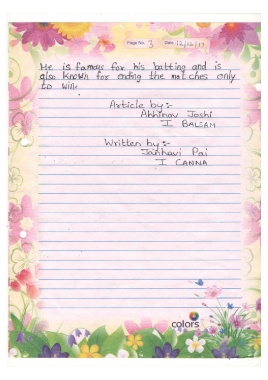 Page No. 3 Date 12/12/17
He is famous for his batting and is
also known for ending the matches only
to win.
Article by :-
Abhinav Joshi
I BALSAM
Written by :-
Janhavi Pai
I CANNA
colors